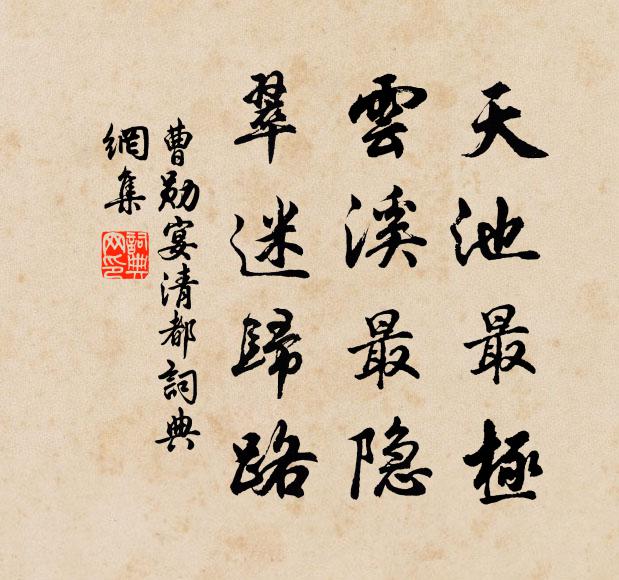 天池最極
雲溪最隐
翠迷歸路
曹勋宴清都詞典
網集
詞典
网印